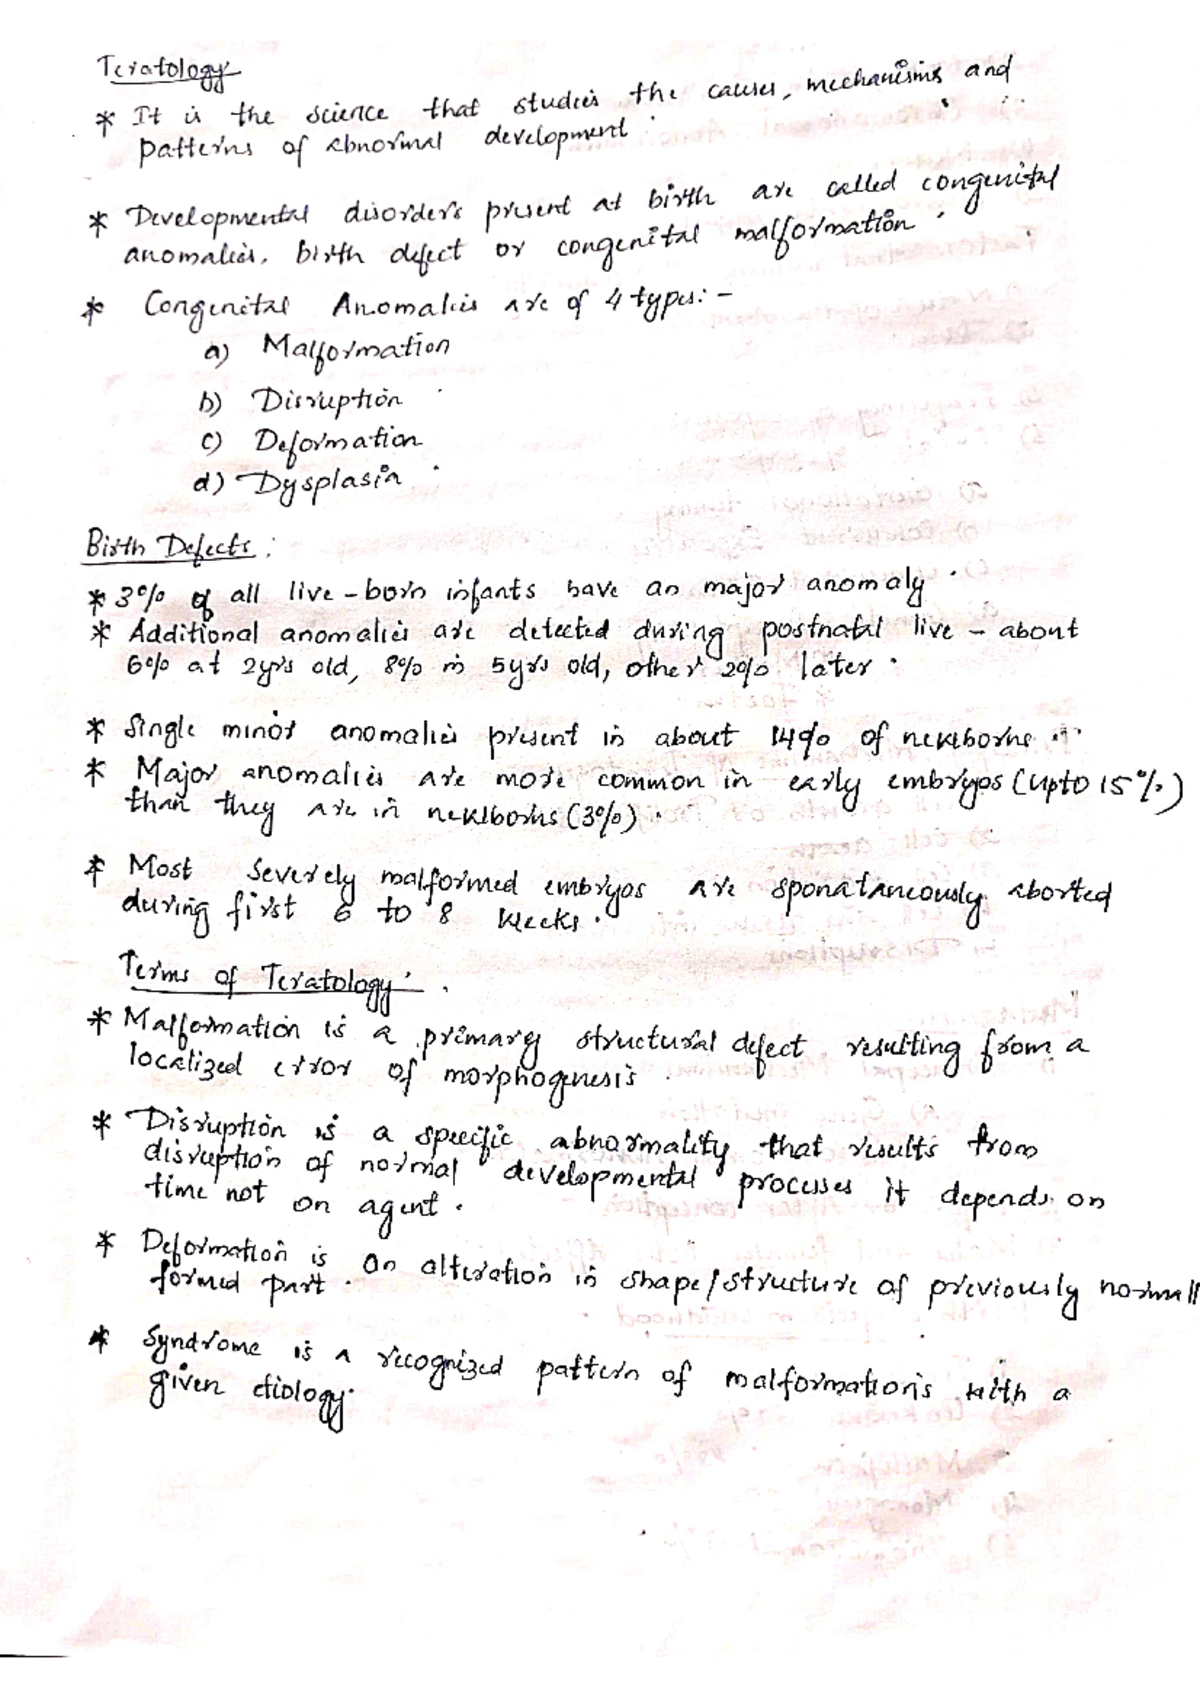 Teratology
* It is the science that studies the causes, mechanisms and
patterns of abnormal development.
* Developmental disorders present at birth are called congenital
anomalies, birth defect or congenital malformation.
* Congenital Anomalies are of 4 types:-
a) Malformation
b) Disruption
c) Deformation
d) Dysplasia
Birth Defects:
* 3% of all live-born infants have an major anomaly.
* Additional anomalies are detected during postnatal live - about
6% at 2yrs old, 8% in 5yrs old, other 2% later.
* Single minor anomalies present in about 14% of newborns
* Major anomalies are more common in early embryos (upto 15%)
than they are in newborns (3%).
* Most severely malformed embryos are sponataneously aborted
during first 6 to 8 weeks.
Terms of Teratology:
* Malformation is a primary structural defect resulting from a
localized error of morphogenesis.
* Disruption is a specific abnormality that results from
disruption of normal developmental processes it depends on
time not on agent.
* Deformation is an alteration in shape/structure of previously normall
formed part.
* Syndrome is a recognized pattern of malformations with a
given etiology.